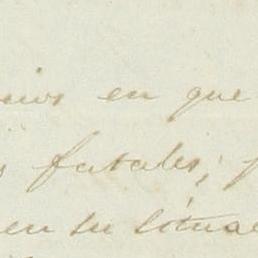 en que
fatales;
en su situa